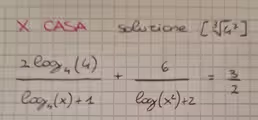 X CASA soluzione [∛4²]
2 log₄(4) / log₄(x)+1 + 6 / log(x²)+2 = 3/2